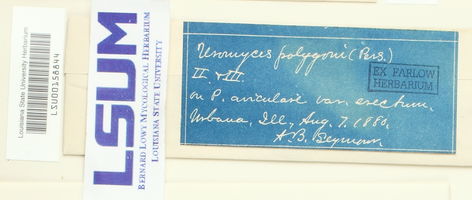 Louisiana State University Herbarium
LSU00156844
LSUM
BERNARD LOWY MYCOLOGICAL HERBARIUM
LOUISIANA STATE UNIVERSITY
Uromyces polygoni (Pers.)
II. & III.
EX FARLOW
HERBARIUM
on P. aviculare var. erectum,
Urbana, Ill., Aug. 7, 1880,
A. B. Seymour